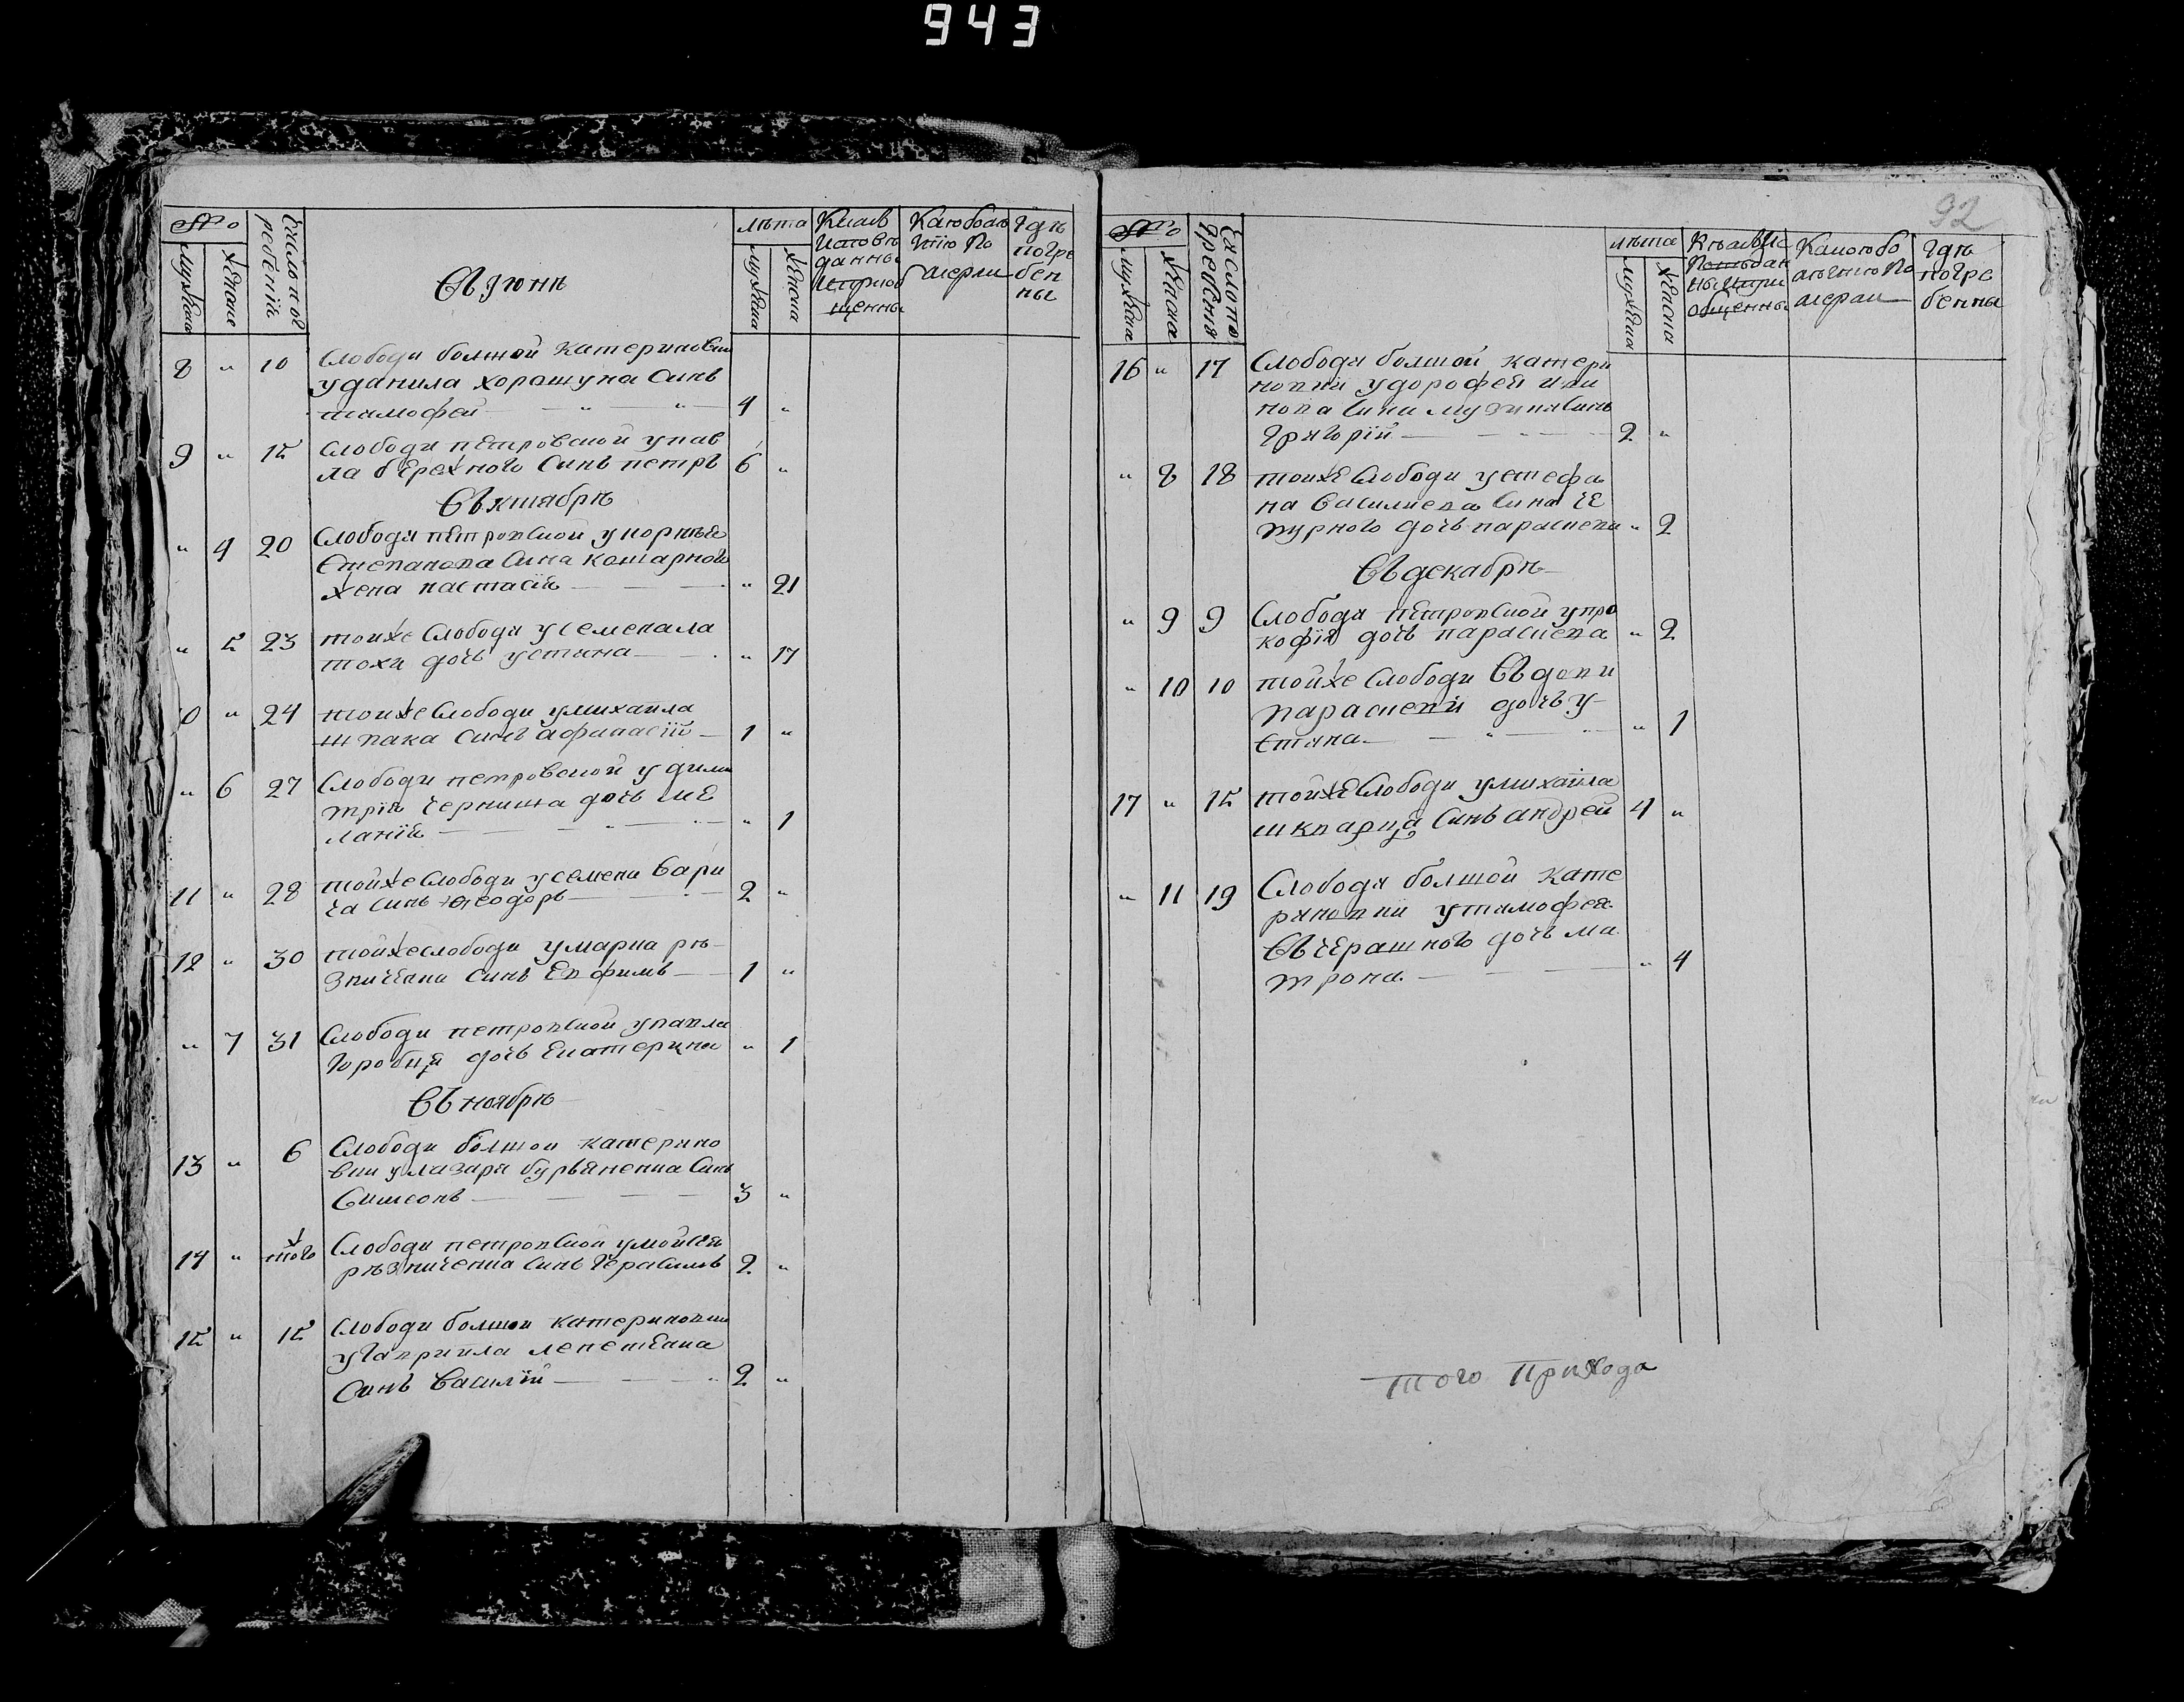 943
№
мужска
женске
Число погребеній
Въ Июнѣ
лѣта
мужеска
женска
Кѣмъ исповѣданны и приобщенны
Какою болѣзнію померли
Гдѣ погребенны
8 " 10 Слободи болшой катериновки
у данила хорошуна Синъ
тимофей — 4 "
9 " 15 Слободи петровской у пав
ла бережного Синъ петръ 6 "
Въ ктябрѣ
" 4 20 Слободи петровской у корнѣя
Степанова Сина кошарного
жена настасія — " 21
" 5 23 тойже Слободи у семена ла
тохи дочъ устина — " 17
10 " 24 тойже Слободи у михаила
шпака Синъ афанасій — 1 "
" 6 27 Слободи петровской у дими
трія черниша дочъ ме
ланія — " 1
11 " 28 тойже Слободи у семена вари
ча Синъ феодоръ — 2 "
12 " 30 тойже слободи у марка рѣ
зниченка Синъ Евфимъ — 1 "
" 7 31 Слободи петровской у павла
горобця дочъ Екатерина " 1
Въ ноябрѣ
13 " 6 Слободи болшой катерино
вки у лазаря бурьяненка Синъ
Симеонъ — 3 "
14 " того Слободи петровской у мойсея
рѣзниченка Синъ герасимъ 2 "
15 " 15 Слободи болшой катериновки
у гавриила лепетенка
Синъ василій — 2 "
92
№
мужска
женска
Число погребения
лѣта
мужеска
женска
Кѣмъ Ис
повѣдан
ны и при
общенны
Какою бо
лѣзнію по
мерли
гдѣ
погре
бенны
16 " 17 Слободи болшой катери
новки у дорофея ива
нова Сина музики Синъ
григорій — 2 "
" 8 18 тойже Слободи у стефа
на василиева Сина че
пурного дочъ параскева " 2
Въ декабрѣ
" 9 9 Слободи петровской у про
кофія дочъ параскева " 2
" 10 10 тойже Слободи Въдови
параскеви дочъ у
стина — " 1
17 " 15 тойже Слободи у михаила
шкварца Синъ андрей 4 "
" 11 19 Слободи болшой кате
риновки у тимофея
Въчерашного дочъ ма
трона — " 4
того прихода